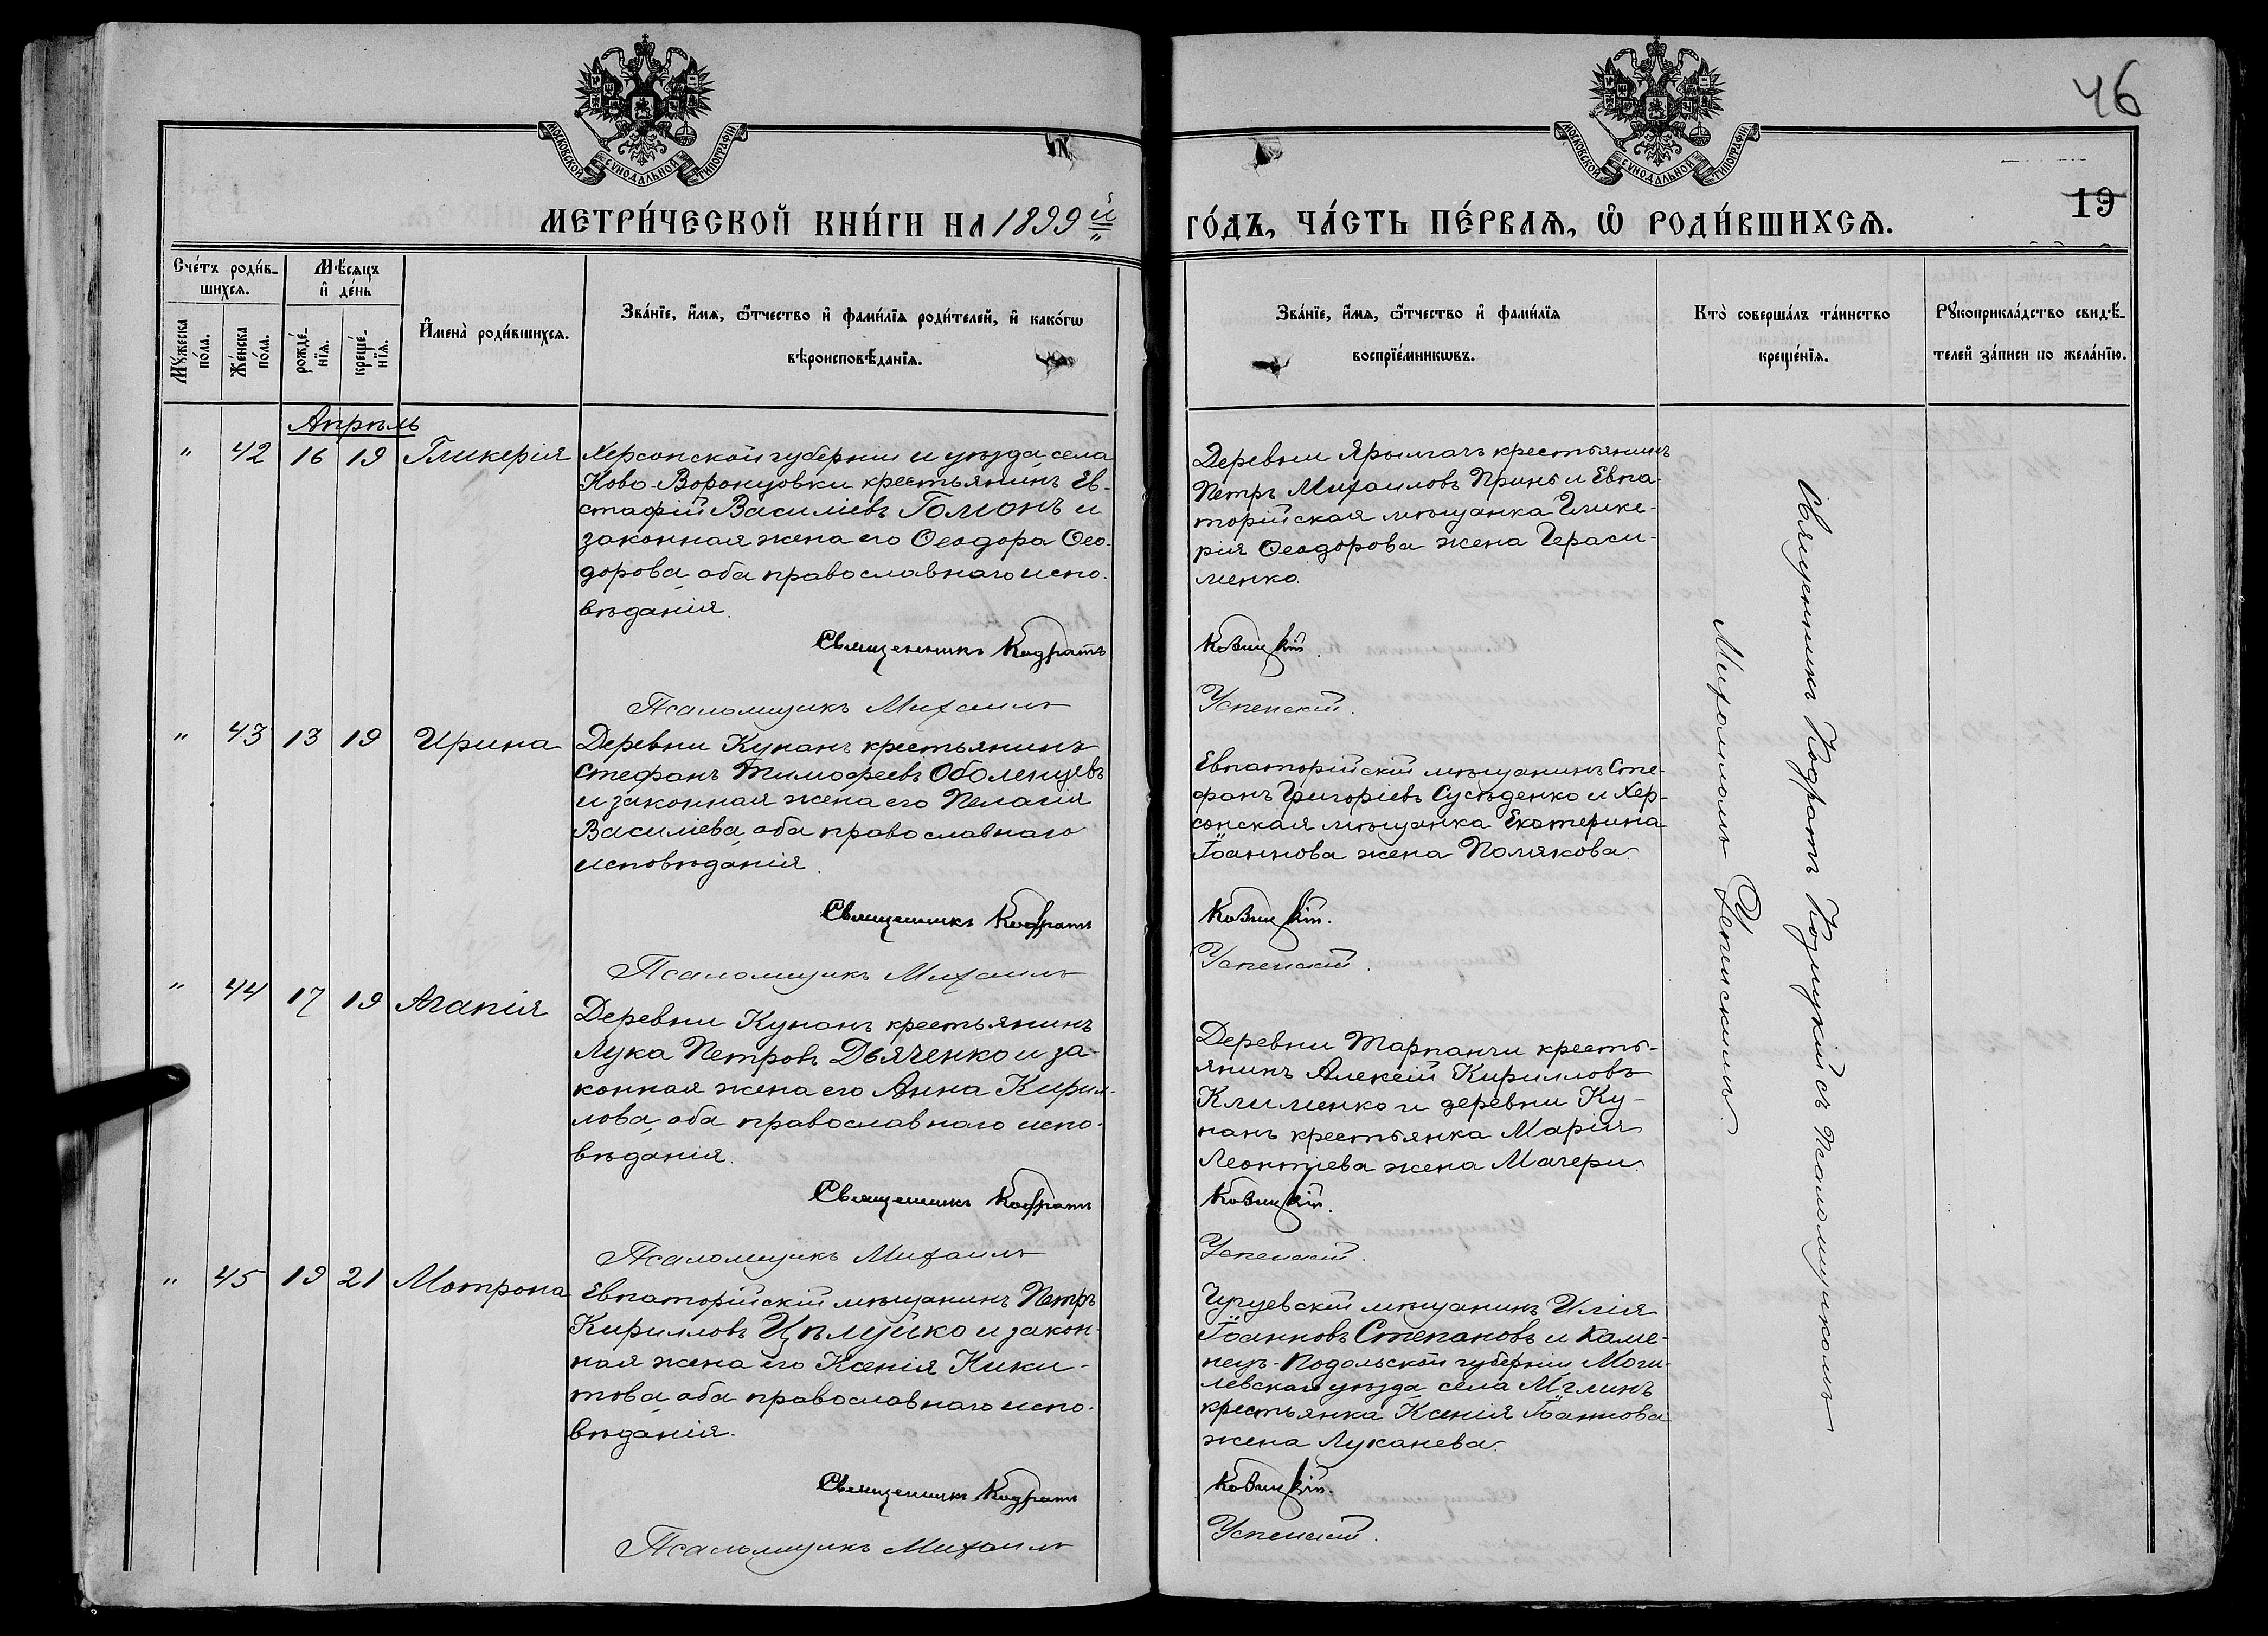 46
МОСКОВСКОЙ СѴНОДАЛЬНОЙ ТИПОГРАФІИ
МОСКОВСКОЙ СѴНОДАЛЬНОЙ ТИПОГРАФІИ
19
МЕТРИ́ЧЕСКОЙ КНИ́ГИ НА 1899й
ГО́ДЪ, ЧА́СТЬ ПЕ́РВАѦ, Ѡ҆ РОДИ́ВШИХСѦ.
Сче́тъ роди́в-
шихсѧ.
Мꙋ́жеска по́ла.
Же́нска по́ла.
Мѣ́сѧцъ
и҆ де́нь
рожде́-
нїѧ.
креще́-
нїѧ.
И҆мена̀ роди́вшихсѧ.
Зва́нїе, и҆́мѧ, ѻ҆́тчество и҆ фами́лїѧ роди́телей, и҆ како́гѡ
вѣроисповѣ́данїѧ.
Зва́нїе, и҆́мѧ, ѻ҆́тчество и҆ фами́лїѧ
воспрїе́мникѡвъ.
Кто̀ соверша́лъ та́инство
креще́нїѧ.
Рꙋкоприкла́дство свидѣ́-
телей за́писи по жела́нїю.
Апрѣль
" 42 16 19 Гликерія
Херсонской губерніи и уѣзда, села
Ново-Воронцовки крестьянинъ Ев-
стафій Василіевъ Гомонъ и
законная жена его Ѳеодора Ѳео-
дорова, оба православнаго испо-
вѣданія.
Священникъ Кодратъ
Псаломщикъ Михаилъ
Деревни Ярылгачъ крестьянинъ
Петръ Михаиловъ Принь и Евпа-
торійская мѣщанка Глике-
рія Ѳеодорова жена Гераси-
менко.
Козицкій.
Успенскій.
" 43 13 19 Ирина
Деревни Кунанъ крестьянинъ
Стефанъ Тимофеевъ Оболенцевъ
и законная жена его Пелагія
Василіева, оба православнаго
исповѣданія.
Священникъ Кодратъ
Псаломщикъ Михаилъ
Евпаторійскій мѣщанинъ Сте-
фанъ Григоріевъ Сусѣденко и Хер-
сонская мѣщанка Екатерина
Іоаннова жена Полякова.
Козицкій.
Успенскій.
" 44 17 19 Агапія
Деревни Кунанъ крестьянинъ
Лука Петровъ Дьяченко и за-
конная жена его Анна Кирил-
лова, оба православнаго испо-
вѣданія.
Священникъ Кодратъ
Псаломщикъ Михаилъ
Деревни Тарпанчи кресть-
янинъ Алексій Кирилловъ
Клименко и деревни Ку-
нанъ крестьянка Марія
Леонтіева жена Мачери.
Козицкій.
Успенскій.
" 45 19 21 Мотрона
Евпаторійскій мѣщанинъ Петръ
Кирилловъ Цѣлуйко и закон-
ная жена его Ксенія Ники-
това, оба православнаго испо-
вѣданія.
Священникъ Кодратъ
Псаломщикъ Михаилъ
Чугуевскій мѣщанинъ Илія
Іоанновъ Степановъ и Каме-
нецъ-Подольской губерніи Моги-
левскаго уѣзда, села
крестьянка Ксенія Іоаннова
жена Луканева.
Козицкій.
Успенскій.
Священникъ Кодратъ Козицкій съ псаломщикомъ
Михаиломъ Успенскимъ.